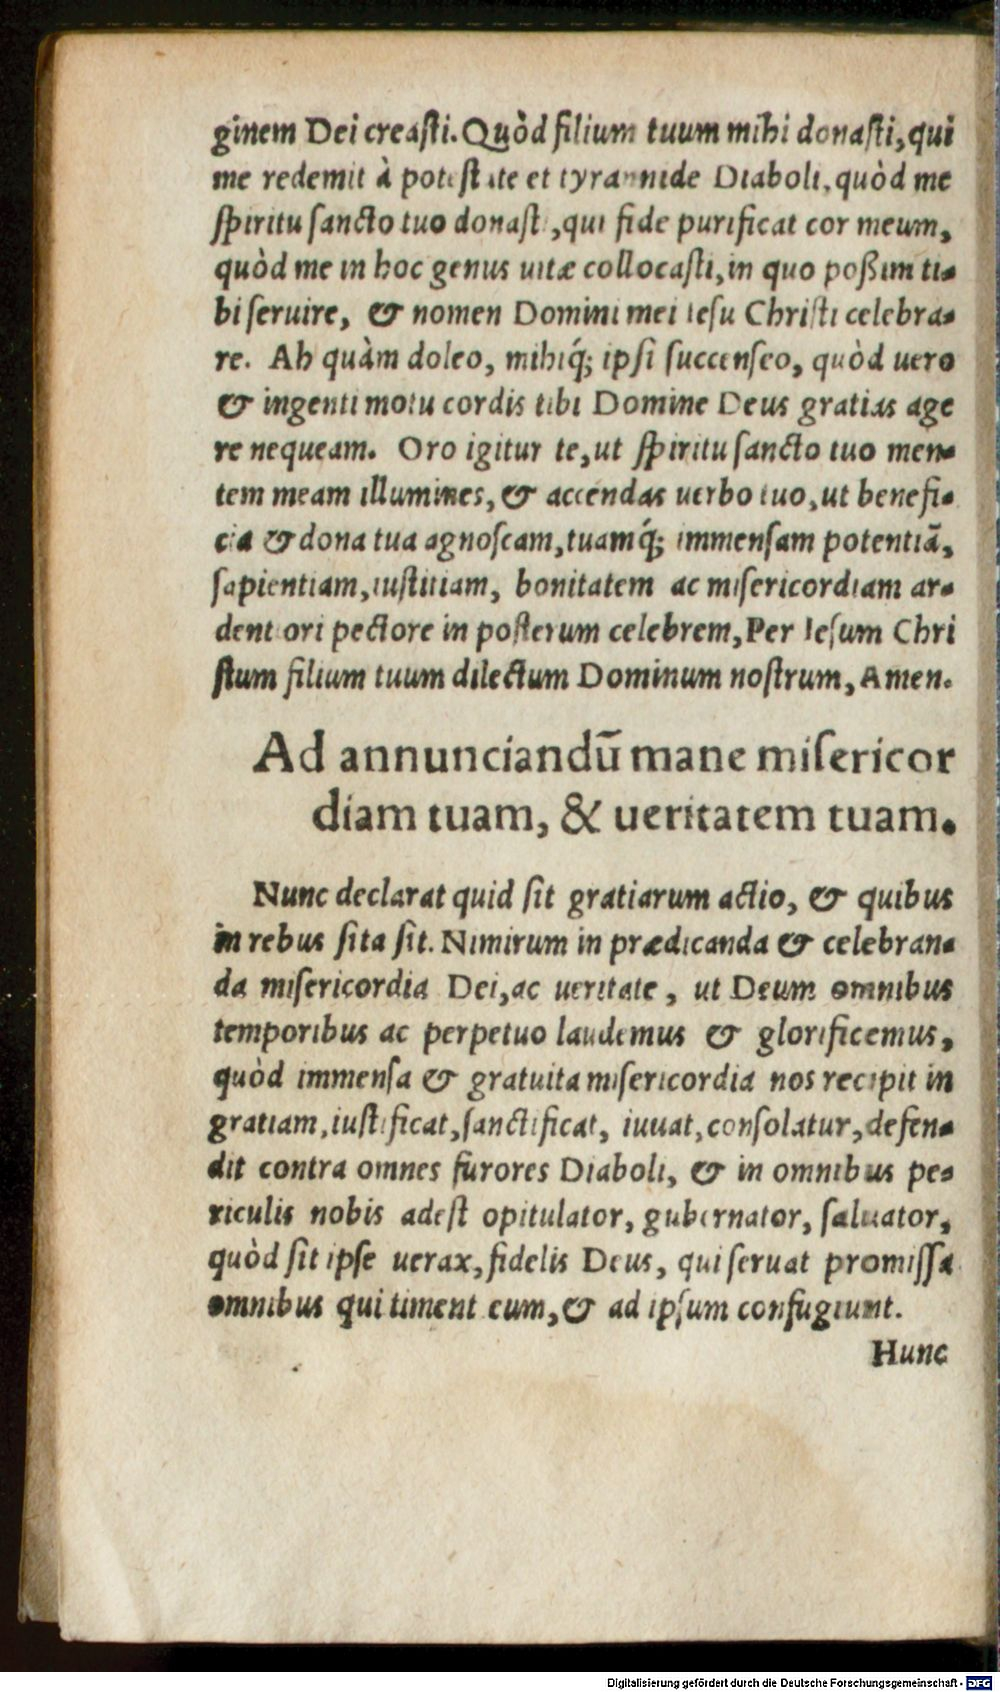 ginem Dei creasti. Quòd filium tuum mihi donasti, qui
me redemit à potestate et tyrannide Diaboli, quòd me
spiritu sancto tuo donasti, qui fide purificat cor meum,
quòd me in hoc genus uitæ collocasti, in quo poßim ti-
bi seruire, & nomen Domini mei Iesu Christi celebra-
re. Ah quàm doleo, mihiq́; ipsi succenseo, quòd uero
& ingenti motu cordis tibi Domine Deus gratias age
re nequeam. Oro igitur te, ut spiritu sancto tuo men-
tem meam illumines, & accendas uerbo tuo, ut benefi-
cia & dona tua agnoscam, tuamq́; immensam potentiā,
sapientiam, iustitiam, bonitatem ac misericordiam ar-
dentiori pectore in posterum celebrem, Per Iesum Chri
stum filium tuum dilectum Dominum nostrum, Amen.
Ad annunciandū mane misericor
diam tuam, & ueritatem tuam.
Nunc declarat quid sit gratiarum actio, & quibus
in rebus sita sit. Nimirum in prædicanda & celebran-
da misericordia Dei, ac ueritate, ut Deum omnibus
temporibus ac perpetuo laudemus & glorificemus,
quòd immensa & gratuita misericordia nos recipit in
gratiam, iustificat, sanctificat, iuuat, consolatur, defen-
dit contra omnes furores Diaboli, & in omnibus pe-
riculis nobis adest opitulator, gubernator, saluator,
quòd sit ipse uerax, fidelis Deus, qui seruat promissa
omnibus qui timent eum, & ad ipsum confugiunt.
Hunc
Digitalisierung gefördert durch die Deutsche Forschungsgemeinschaft - DFG